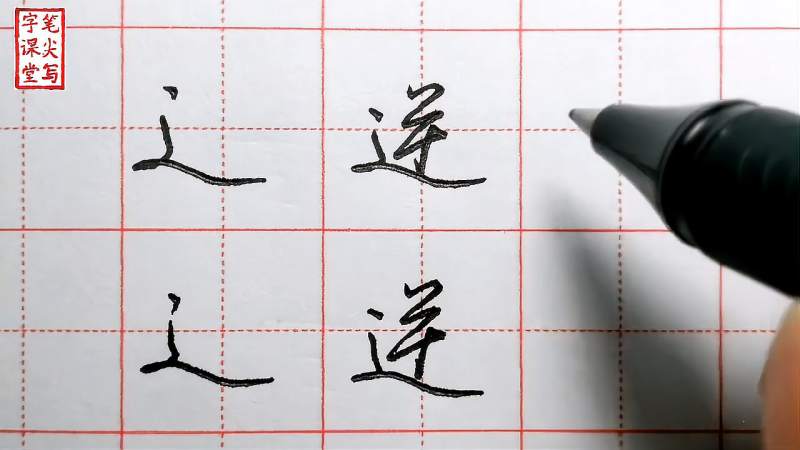 笔尖写
字课堂
辶 逆
辶 逆